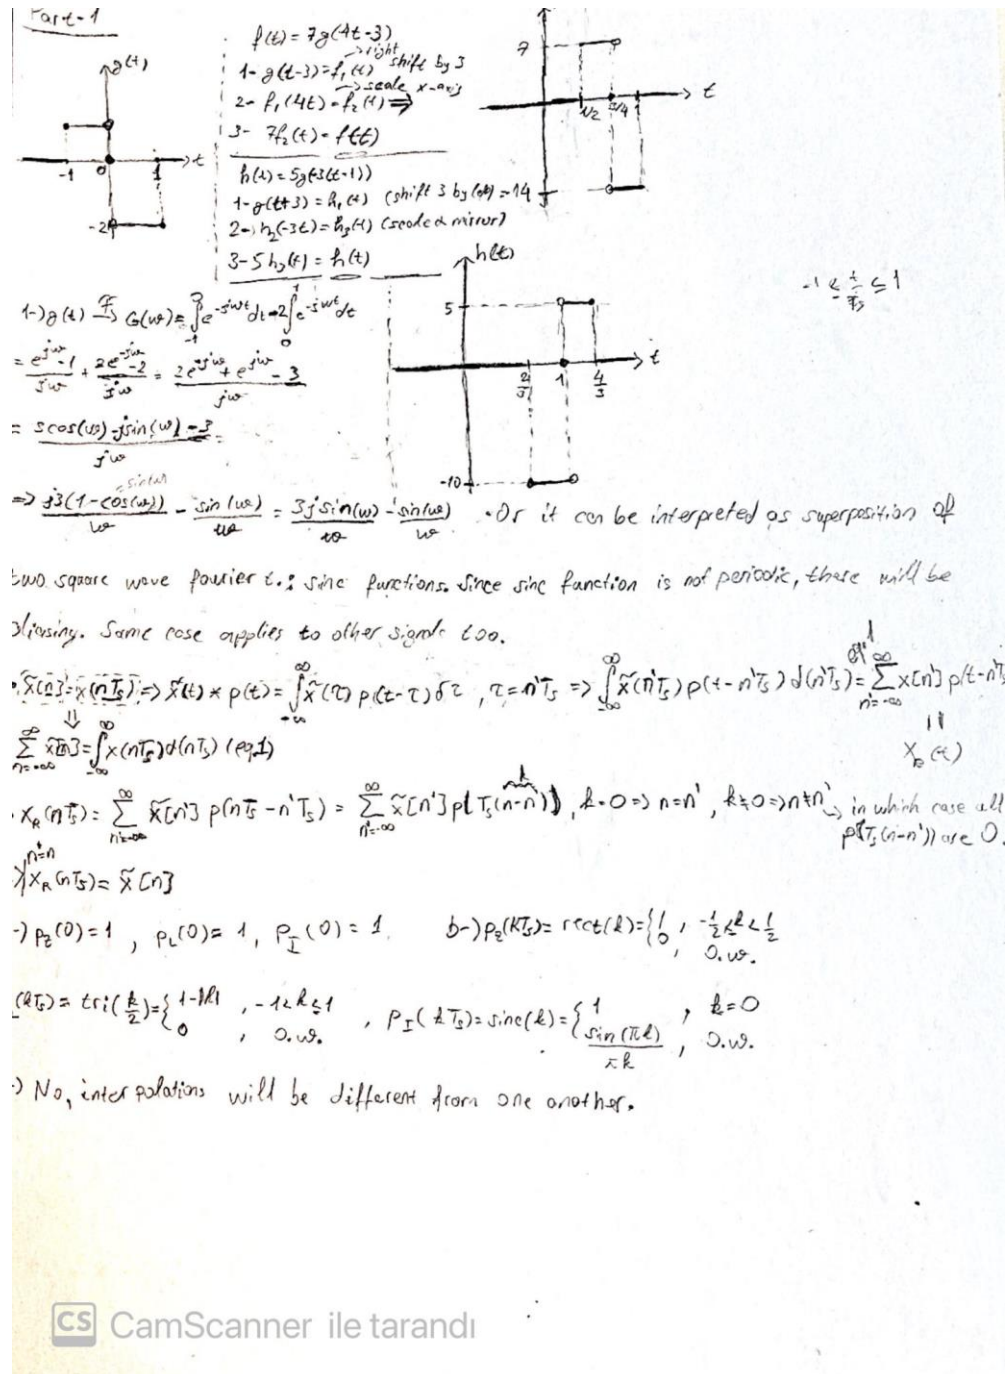 Part-1
g(t)
-1
0
1
t
-2
f(t) = 7g(4t-3)
→right
1- g(t-3)=f₁(t) shift by 3
→scale x-axis
2- f₁(4t)=f₂(t) ⇒
3- 7f₂(t)=f(t)
h(t)=5g(-3(t-1))
1-g(t+3)=h₁(t) (shift 3 by left)
2-) h₂(-3t)=h₃(t) (scale & mirror)
3-5h₃(t)=h(t)
7
1/2 3/4 1
t
-14
h(t)
5
2/3 1 4/3
t
-10
-1 ≤ t/Ts ≤ 1
1-) g(t) F→ G(w)= ∫₋₁⁰ e^-jwt dt -2∫₀¹ e^-jwt dt
= (e^jw -1)/jw + (2e^-jw -2)/jw = (2e^-jw + e^jw - 3)/jw
= (3cos(w)-jsin(w)-3)/jw
=> j3(1-cos(w))/w - sin(w)/w = 3jsin(w)/w - sin(w)/w • Or it can be interpreted as superposition of
two square wave fourier t.: sinc functions. Since sinc function is not periodic, there will be
aliasing. Same case applies to other signals too.
• x̃[n]=x(nTs) => x̃(t) * p(t) = ∫₋∞^∞ x̃(τ) p(t-τ) δτ , τ=n'Ts => ∫₋∞^∞ x̃(n'Ts) p(t-n'Ts) d(n'Ts) = ∑_{n'=-∞}^∞ x[n'] p(t-n'Ts
⇓
∑_{n=-∞}^∞ x[n]=∫₋∞^∞ x(nTs)d(nTs) (eq.1)
=
x_R(t)
• X_R(nTs) = ∑_{n'=-∞}^∞ x̃[n'] p(nTs-n'Ts) = ∑_{n'=-∞}^∞ x̃[n'] p(Ts(n-n')) , k=0 => n=n' , k≠0 => n≠n' in which case all
k
p(Ts(n-n')) are 0.
n'=n
X_R(nTs) = x̃[n]
-) p_z(0)=1 , p_L(0)=1, p_I(0)=1 b-) p_z(kTs)= rect(k)={1 , -1/2≤k<1/2
0 , o.w.
(kTs)= tri(k/2)={1-|k| , -1<k≤1
0 , o.w.
, p_I(kTs)=sinc(k)={1 , k=0
sin(πk)/πk , o.w.
-) No, interpolations will be different from one another.
CS CamScanner ile tarandı